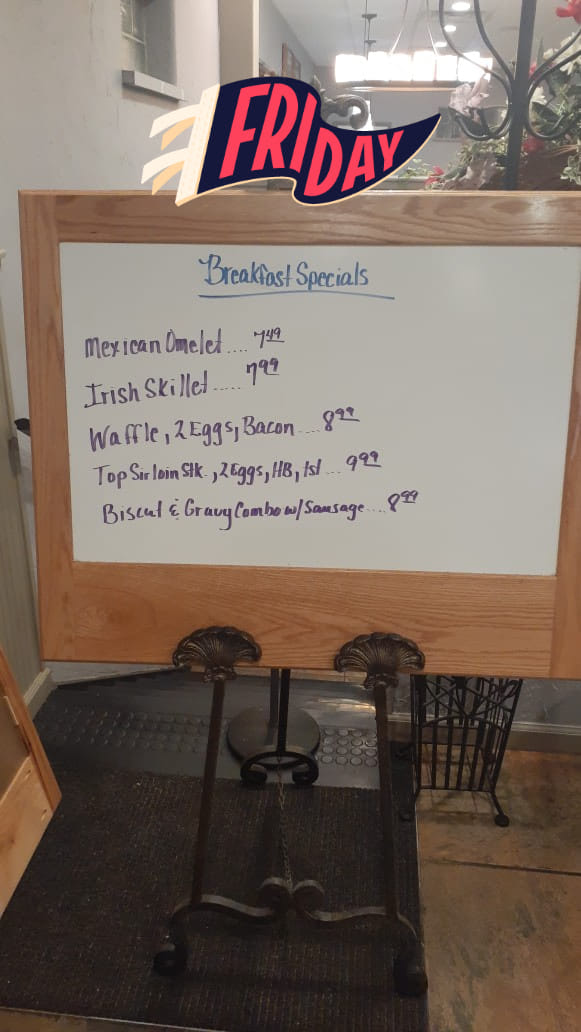 FRIDAY
Breakfast Specials
Mexican Omelet .... 7.49
Irish Skillet ..... 7.99
Waffle, 2 Eggs, Bacon .... 8.99
Top Sirloin Stk., 2 Eggs, HB, tst ... 9.99
Biscut & Gravy Combo w/ Sausage .... 8.99